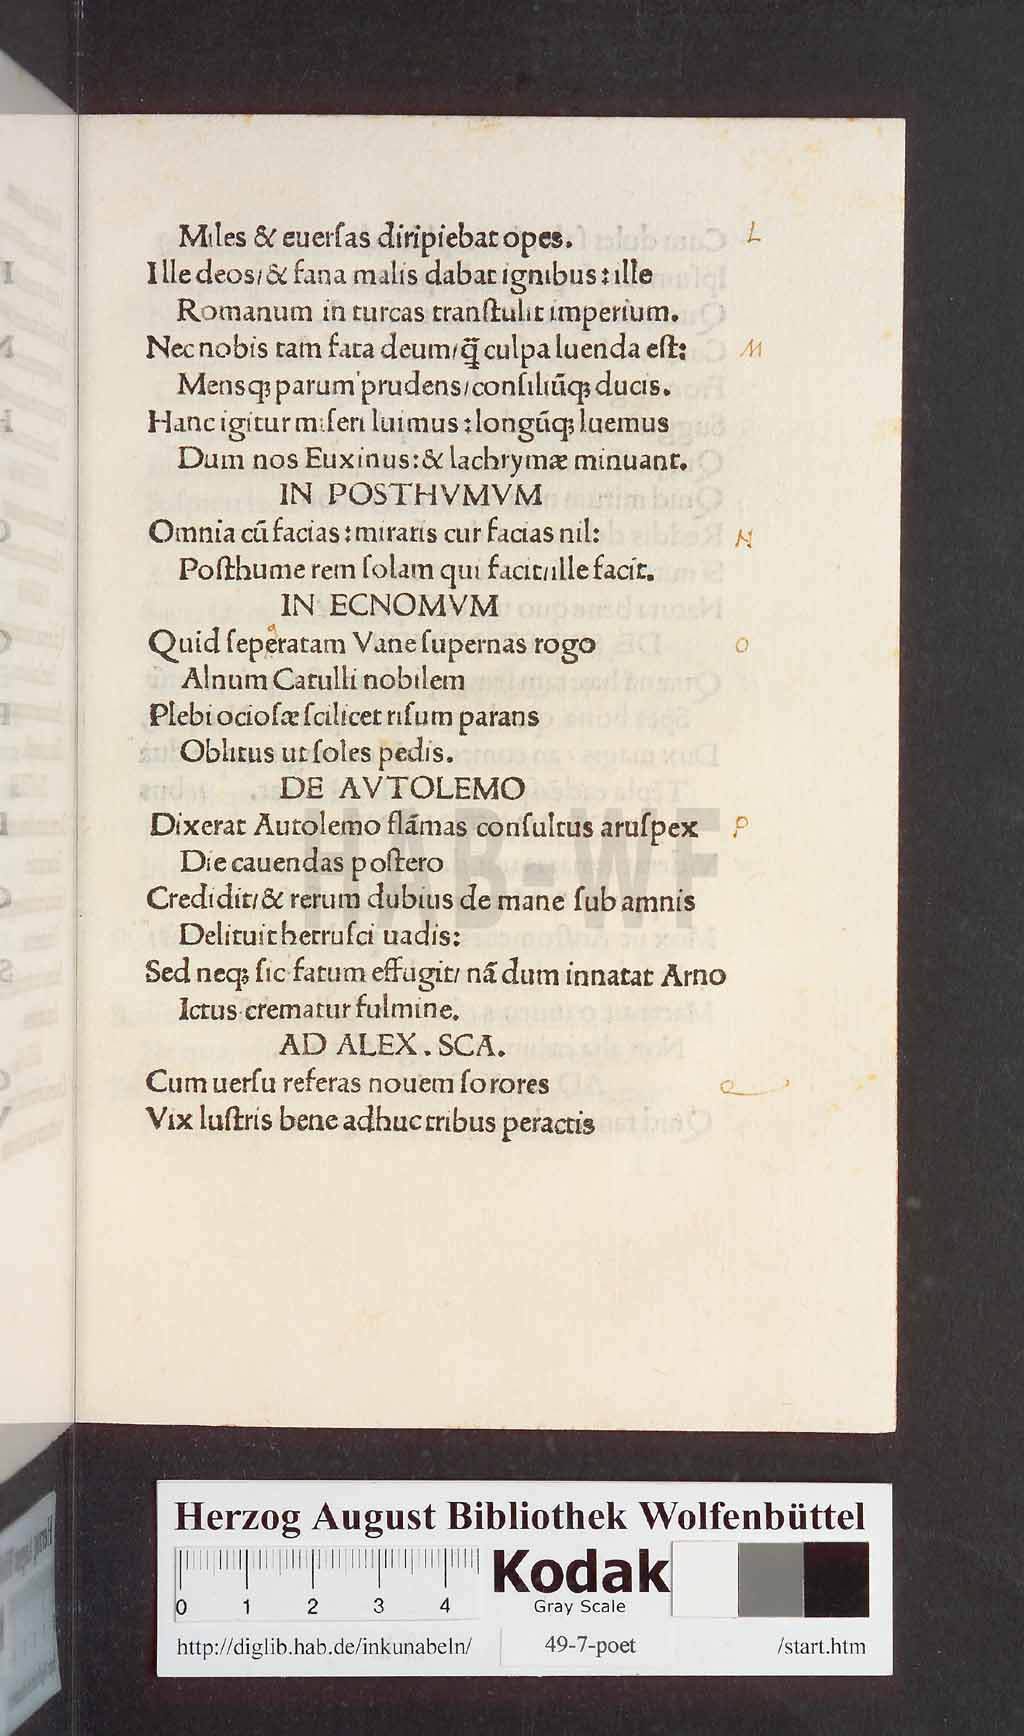 Miles & euerſas diripiebat opes. L
Ille deos/& fana malis dabat ignibus: ille
Romanum in turcas tranſtulit imperium.
Nec nobis tam fata deum/q̃ culpa luenda eſt: M
Mensq; parum prudens/conſiliūq; ducis.
Hanc igitur miſeri luimus: longūq; luemus
Dum nos Euxinus:& lachrymæ minuant.
IN POSTHVMVM
Omnia cū facias: miraris cur facias nil: N
Poſthume rem ſolam qui facit/ille facit.
IN ECNOMVM
Quid ſeperatam Vane ſupernas rogo O
Alnum Catulli nobilem
Plebi ocioſæ ſcilicet riſum parans
Oblitus ut ſoles pedis.
DE AVTOLEMO
Dixerat Autolemo flāmas conſultus aruſpex P
Die cauendas poſtero
Credidit/& rerum dubius de mane ſub amnis
Delituit hetruſci uadis:
Sed neq; ſic fatum effugit/ nā dum innatat Arno
Ictus crematur fulmine.
AD ALEX. SCA.
Cum uerſu referas nouem ſorores Q
Vix luſtris bene adhuc tribus peractis
HAB-WF
Herzog August Bibliothek Wolfenbüttel
0 1 2 3 4
Kodak
Gray Scale
http://diglib.hab.de/inkunabeln/ 49-7-poet /start.htm